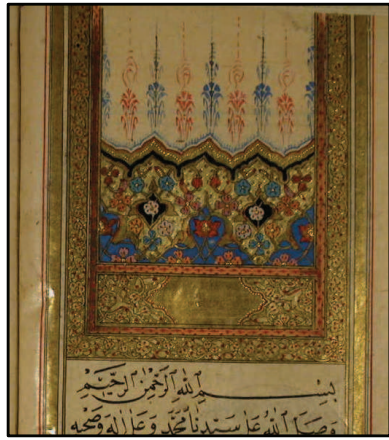 بِسْمِ اللهِ الرَّحْمٰنِ الرَّحِيْمِ
وَصَلَّى اللهُ عَلَى سَيِّدِنَا مُحَمَّدٍ وَعَلَى اٰلِهِ وَصَحْبِهِ